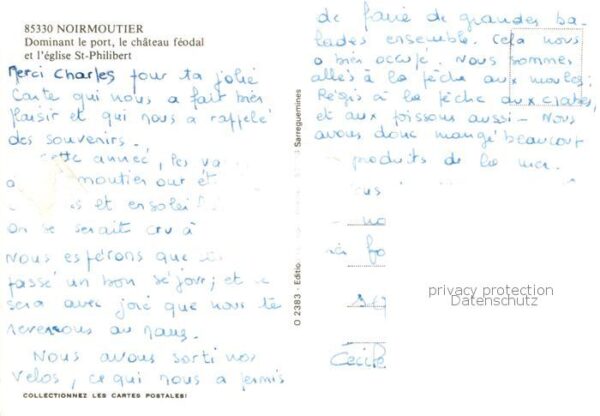 85330 NOIRMOUTIER
Dominant le port, le château féodal
et l'église St-Philibert
Merci Charles pour ta jolie
Carte qui nous a fait très
plaisir et qui nous a rappelé
des souvenirs.
cette année, les va
moutier ont ét
s et ensoleil
On se serait cru à
Nous espérons que
passé un bon séjour; et
sera avec joie que nous te
reverrons au
Nous avons sorti nos
vélos, ce qui nous a permis
COLLECTIONNEZ LES CARTES POSTALES!
O 2383 - Editio
Sarreguemines
de faire de grandes ba-
lades ensemble. Cela nous
a très occupé. Nous sommes
allés à la pêche aux moules;
Régis à la pêche aux crabes,
et aux poissons aussi - Nous
avons donc mangé beaucoup
produits de la mer.
Cécile
privacy protection
Datenschutz